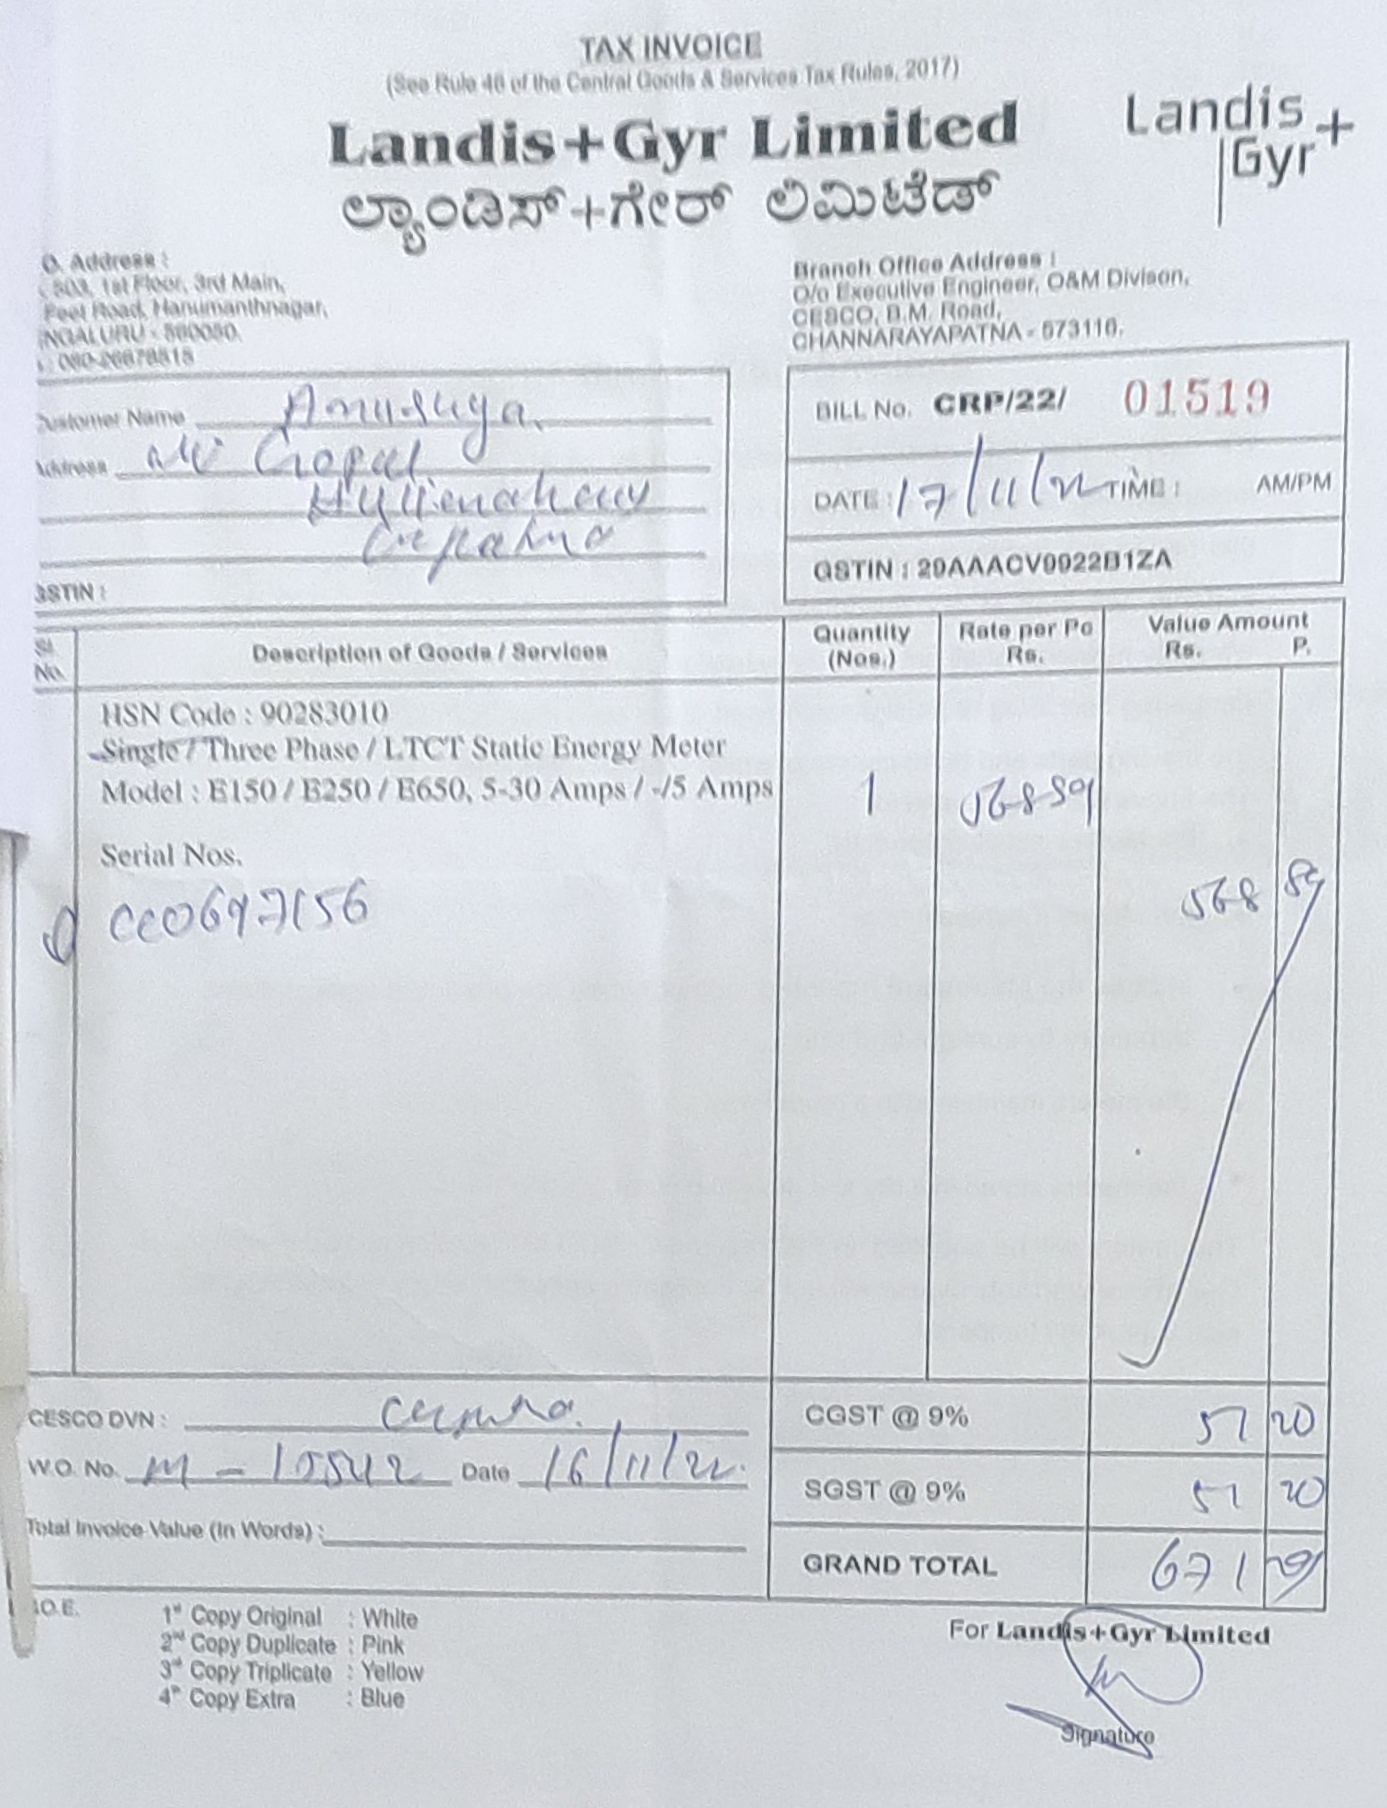 TAX INVOICE
(See Rule 46 of the Central Goods & Services Tax Rules, 2017)
Landis+Gyr Limited
ಲ್ಯಾಂಡಿಸ್+ಗೇರ್ ಲಿಮಿಟೆಡ್
Landis
Gyr+
O. Address :
503, 1st Floor, 3rd Main,
Feet Road, Hanumanthnagar,
NGALURU - 560050.
: 080-26678818
Branch Office Address :
O/o Executive Engineer, O&M Divison,
CESCO, B.M. Road,
CHANNARAYAPATNA - 573116.
Customer Name Anusuya
Address Gopal
GSTIN :
BILL No. CRP/22/ 01519
DATE : 17/11/22 TIME : AM/PM
GSTIN : 29AAACV9922B1ZA
Sl. No. Description of Goods / Services Quantity (Nos.) Rate per Pc Rs. Value Amount Rs. P.
HSN Code : 90283010
Single / Three Phase / LTCT Static Energy Meter
Model : E150 / E250 / E650, 5-30 Amps / -/5 Amps 1 568-89
Serial Nos.
568 89
CESCO DVN :
CGST @ 9% 51 20
W.O. No. M - 10542 Date 16/11/22
SGST @ 9% 51 20
Total Invoice Value (In Words) :
GRAND TOTAL 671 29
.O.E.
1st Copy Original : White
2nd Copy Duplicate : Pink
3rd Copy Triplicate : Yellow
4th Copy Extra : Blue
For Landis+Gyr Limited
Signature